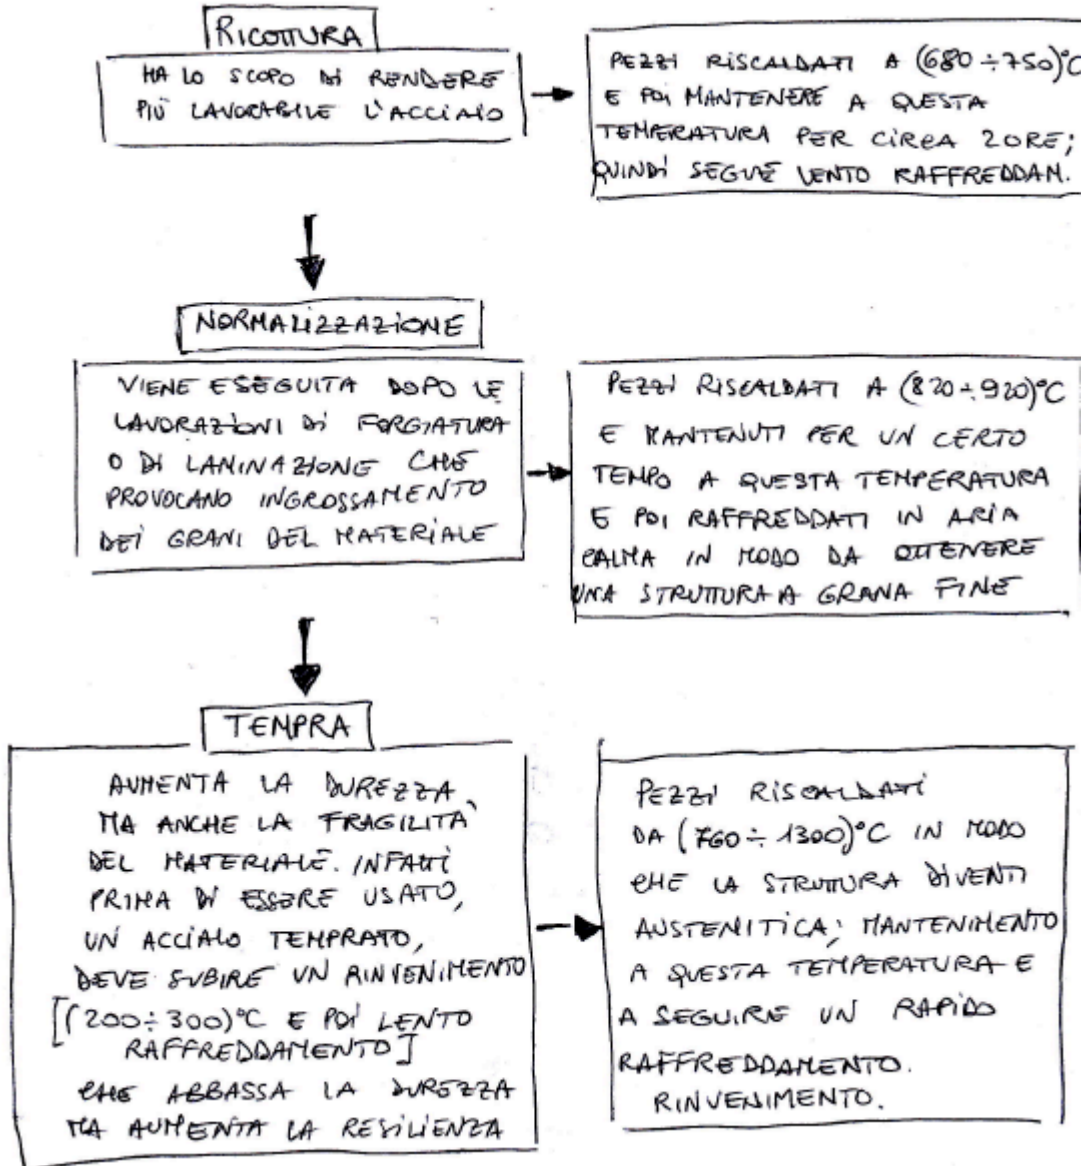 RICOTTURA
HA LO SCOPO DI RENDERE
PIÙ LAVORABILE L'ACCIAIO
PEZZI RISCALDATI A (680÷750)°C
E POI MANTENERE A QUESTA
TEMPERATURA PER CIRCA 2 ORE;
QUINDI SEGUE LENTO RAFFREDDAM.
NORMALIZZAZIONE
VIENE ESEGUITA DOPO LE
LAVORAZIONI DI FORGIATURA
O DI LAMINAZIONE CHE
PROVOCANO INGROSSAMENTO
DEI GRANI DEL MATERIALE
PEZZI RISCALDATI A (820÷920)°C
E MANTENUTI PER UN CERTO
TEMPO A QUESTA TEMPERATURA
E POI RAFFREDDATI IN ARIA
CALMA IN MODO DA OTTENERE
UNA STRUTTURA A GRANA FINE
TEMPRA
AUMENTA LA DUREZZA
MA ANCHE LA FRAGILITÀ
DEL MATERIALE. INFATTI
PRIMA DI ESSERE USATO,
UN ACCIAIO TEMPRATO,
DEVE SUBIRE UN RINVENIMENTO
[(200÷300)°C E POI LENTO
RAFFREDDAMENTO]
CHE ABBASSA LA DUREZZA
MA AUMENTA LA RESILIENZA
PEZZI RISCALDATI
DA (760÷1300)°C IN MODO
CHE LA STRUTTURA DIVENTI
AUSTENITICA; MANTENIMENTO
A QUESTA TEMPERATURA E
A SEGUIRE UN RAPIDO
RAFFREDDAMENTO.
RINVENIMENTO.